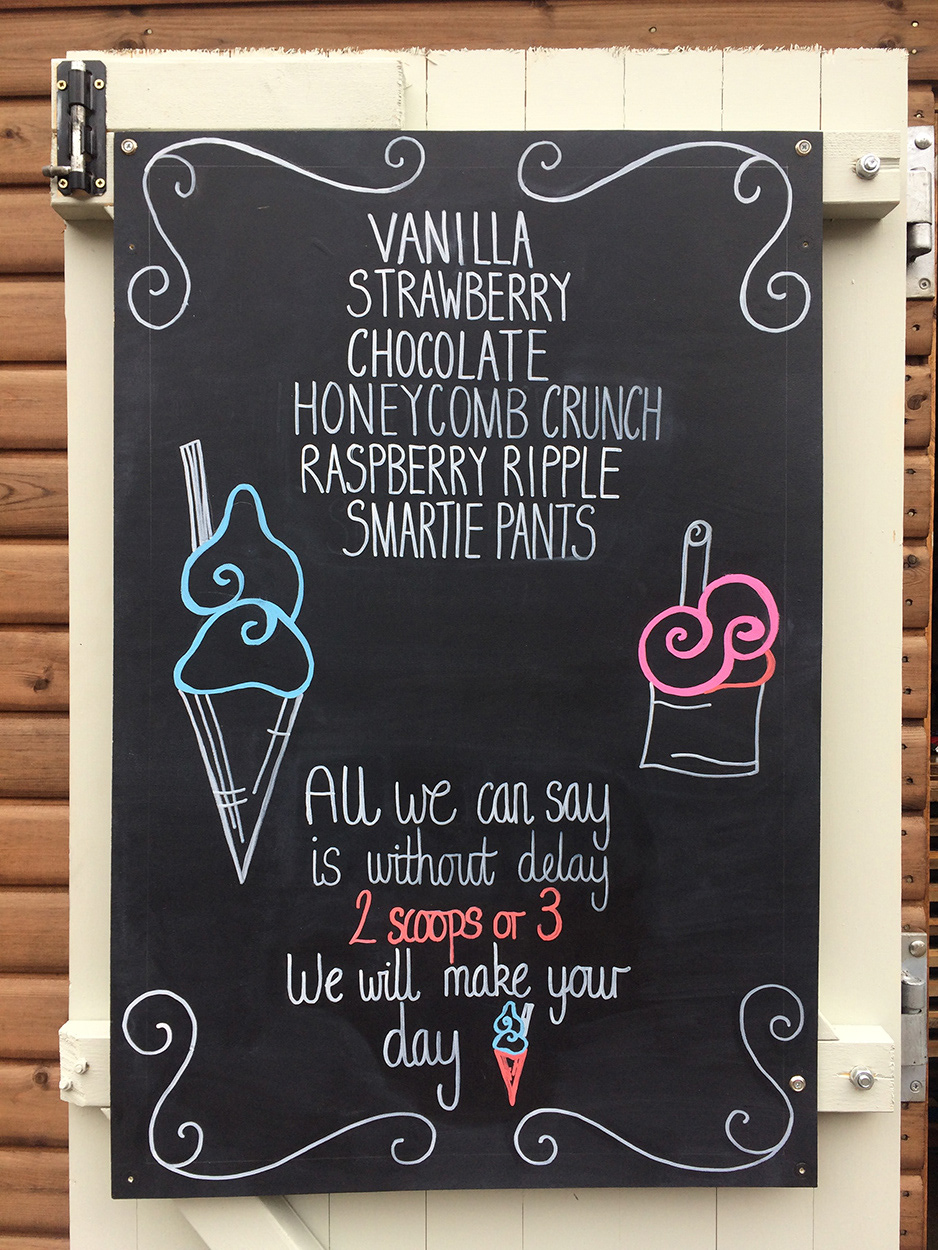 VANILLA
STRAWBERRY
CHOCOLATE
HONEYCOMB CRUNCH
RASPBERRY RIPPLE
SMARTIE PANTS
All we can say
is without delay
2 scoops or 3
We will make your
day